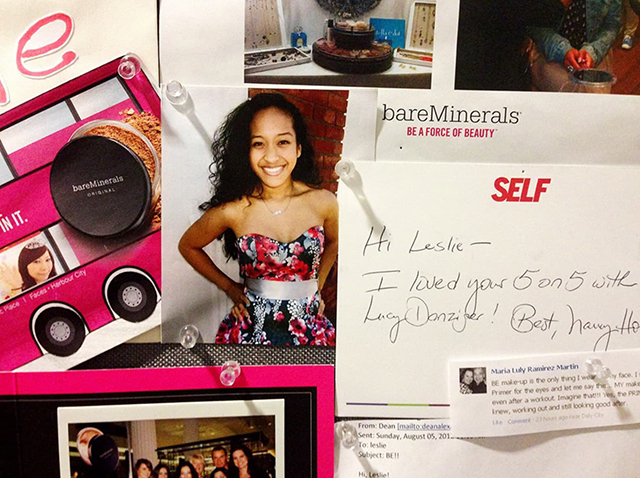 e
bareMinerals
BE A FORCE OF BEAUTY™
bareMinerals
ORIGINAL
IN IT.
Place | Faces - Harbour City
SELF
Hi Leslie —
I loved your 5 on 5 with
Lucy Danziger! Best,
Maria Luly Ramirez Martin
BE make-up is the only thing I face. I
Primer for the eyes and let me say the MY mak
even after a workout. Imagine that!!! Yes, the PRI
knew, working out and still looking good after
Like · Comment ·
From: Dean [mailto:deanalex
Sent: Sunday, August 05, 201
To: leslie
Subject: BE!!
Hi, Leslie!